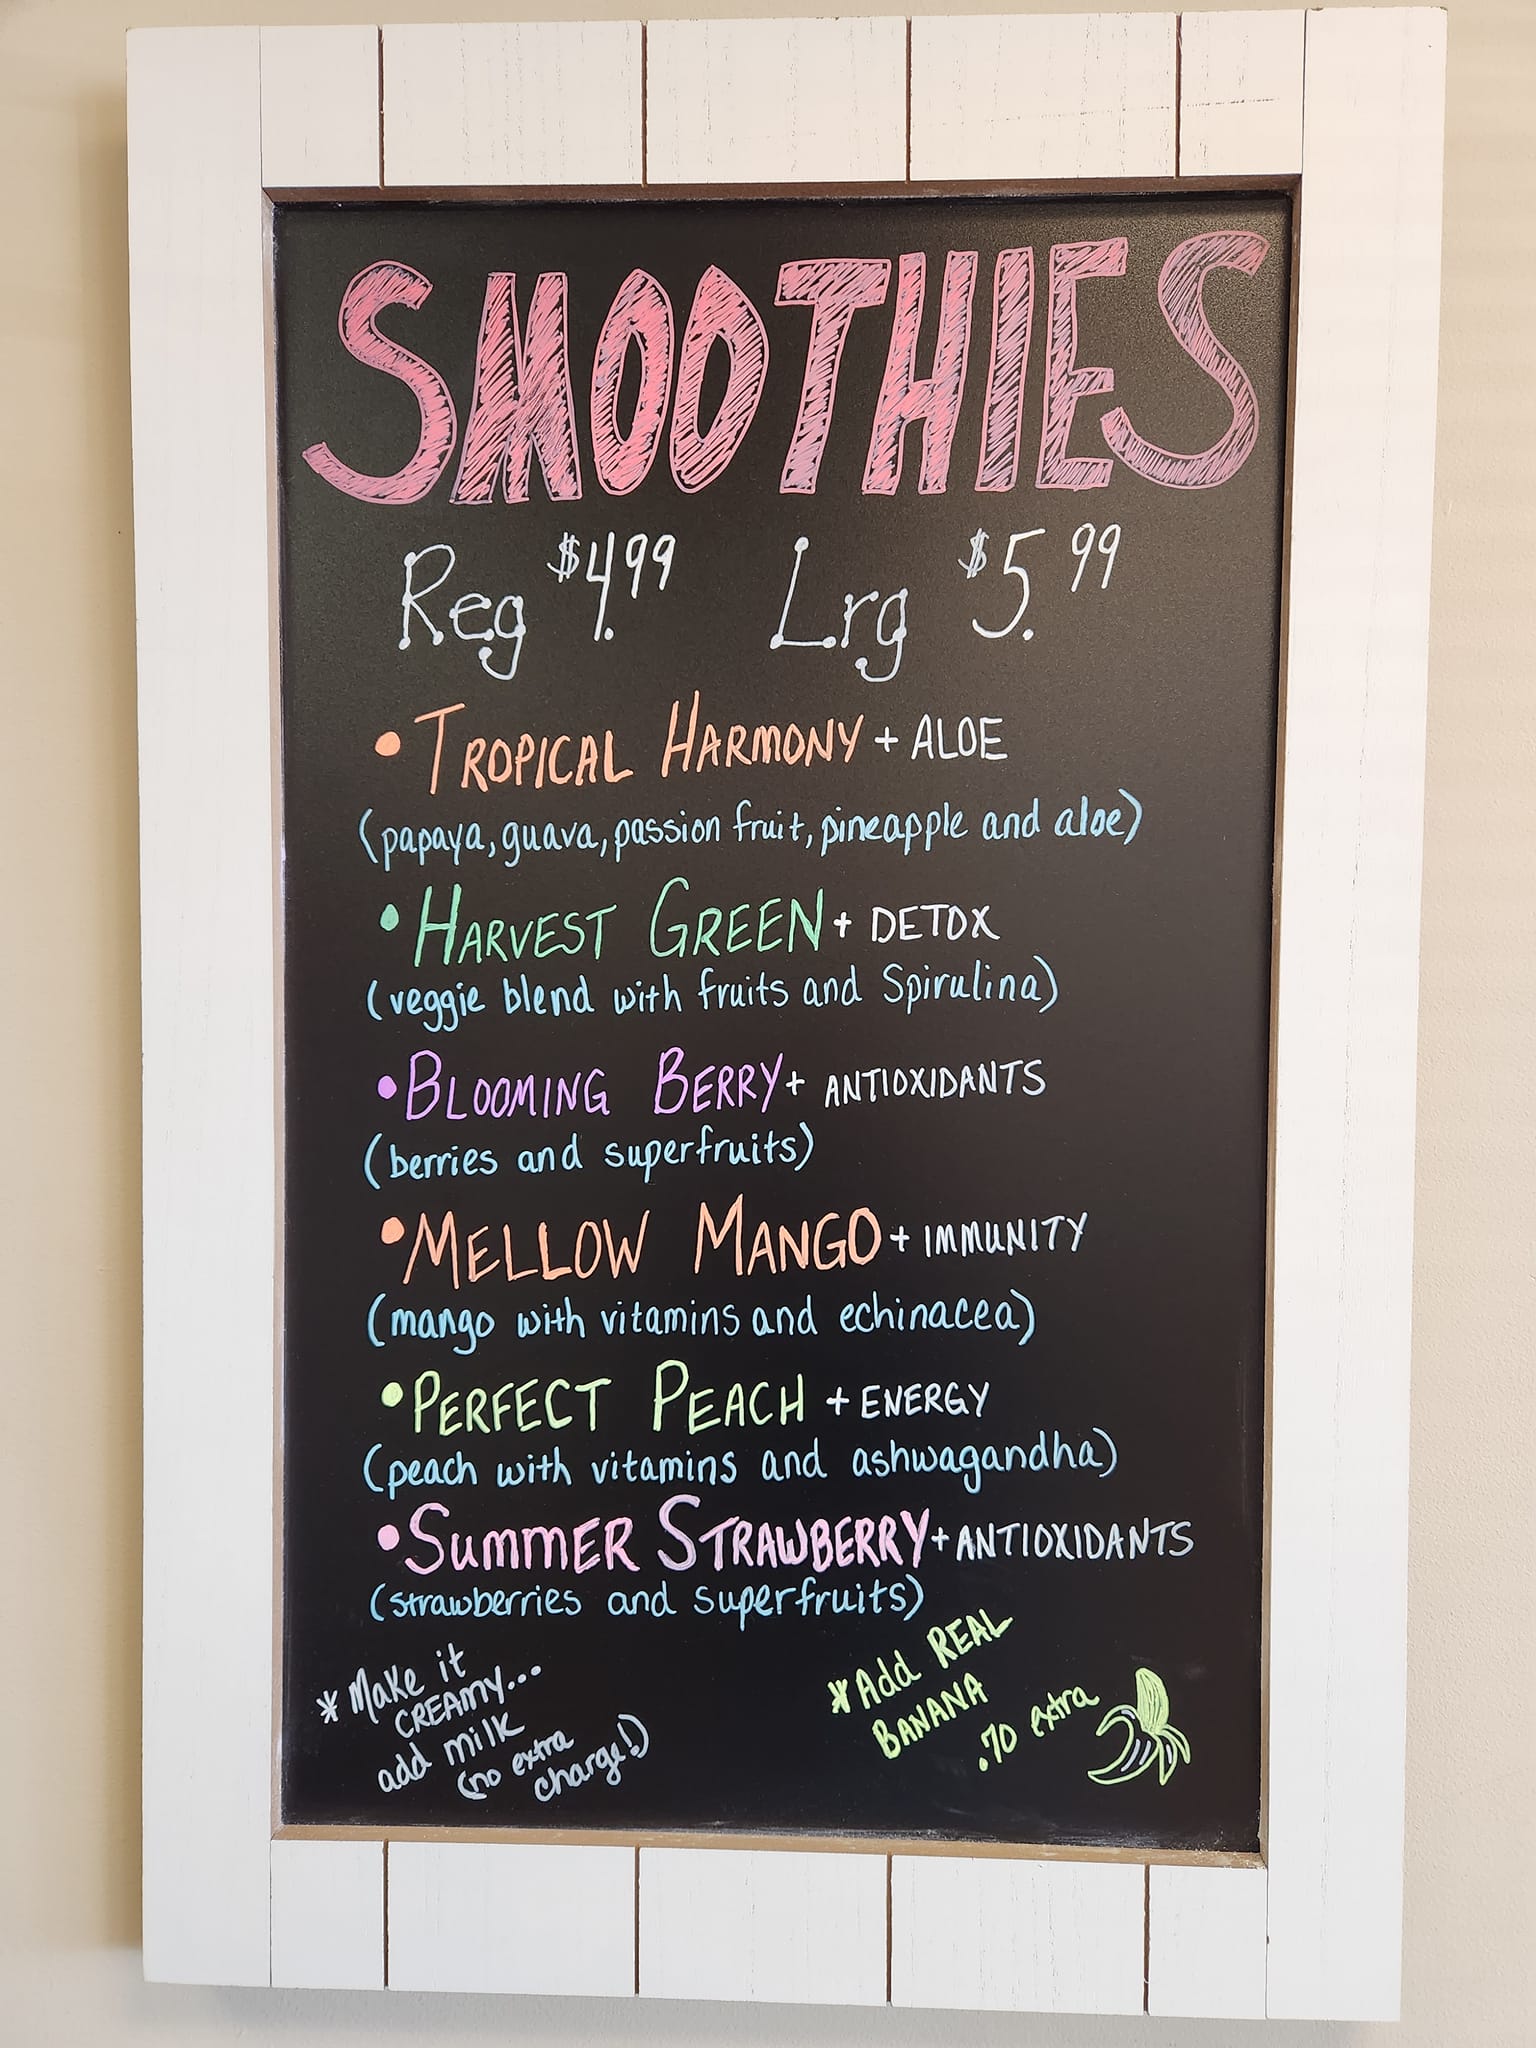 SMOOTHIES
Reg $4.99 Lrg $5.99
• TROPICAL HARMONY + ALOE
(papaya, guava, passion fruit, pineapple and aloe)
• HARVEST GREEN + DETOX
(veggie blend with fruits and Spirulina)
• BLOOMING BERRY + ANTIOXIDANTS
(berries and superfruits)
• MELLOW MANGO + IMMUNITY
(mango with vitamins and echinacea)
• PERFECT PEACH + ENERGY
(peach with vitamins and ashwagandha)
• SUMMER STRAWBERRY + ANTIOXIDANTS
(strawberries and superfruits)
* Make it
CREAMY...
add milk
(no extra
charge!)
* Add REAL
BANANA
.70 extra